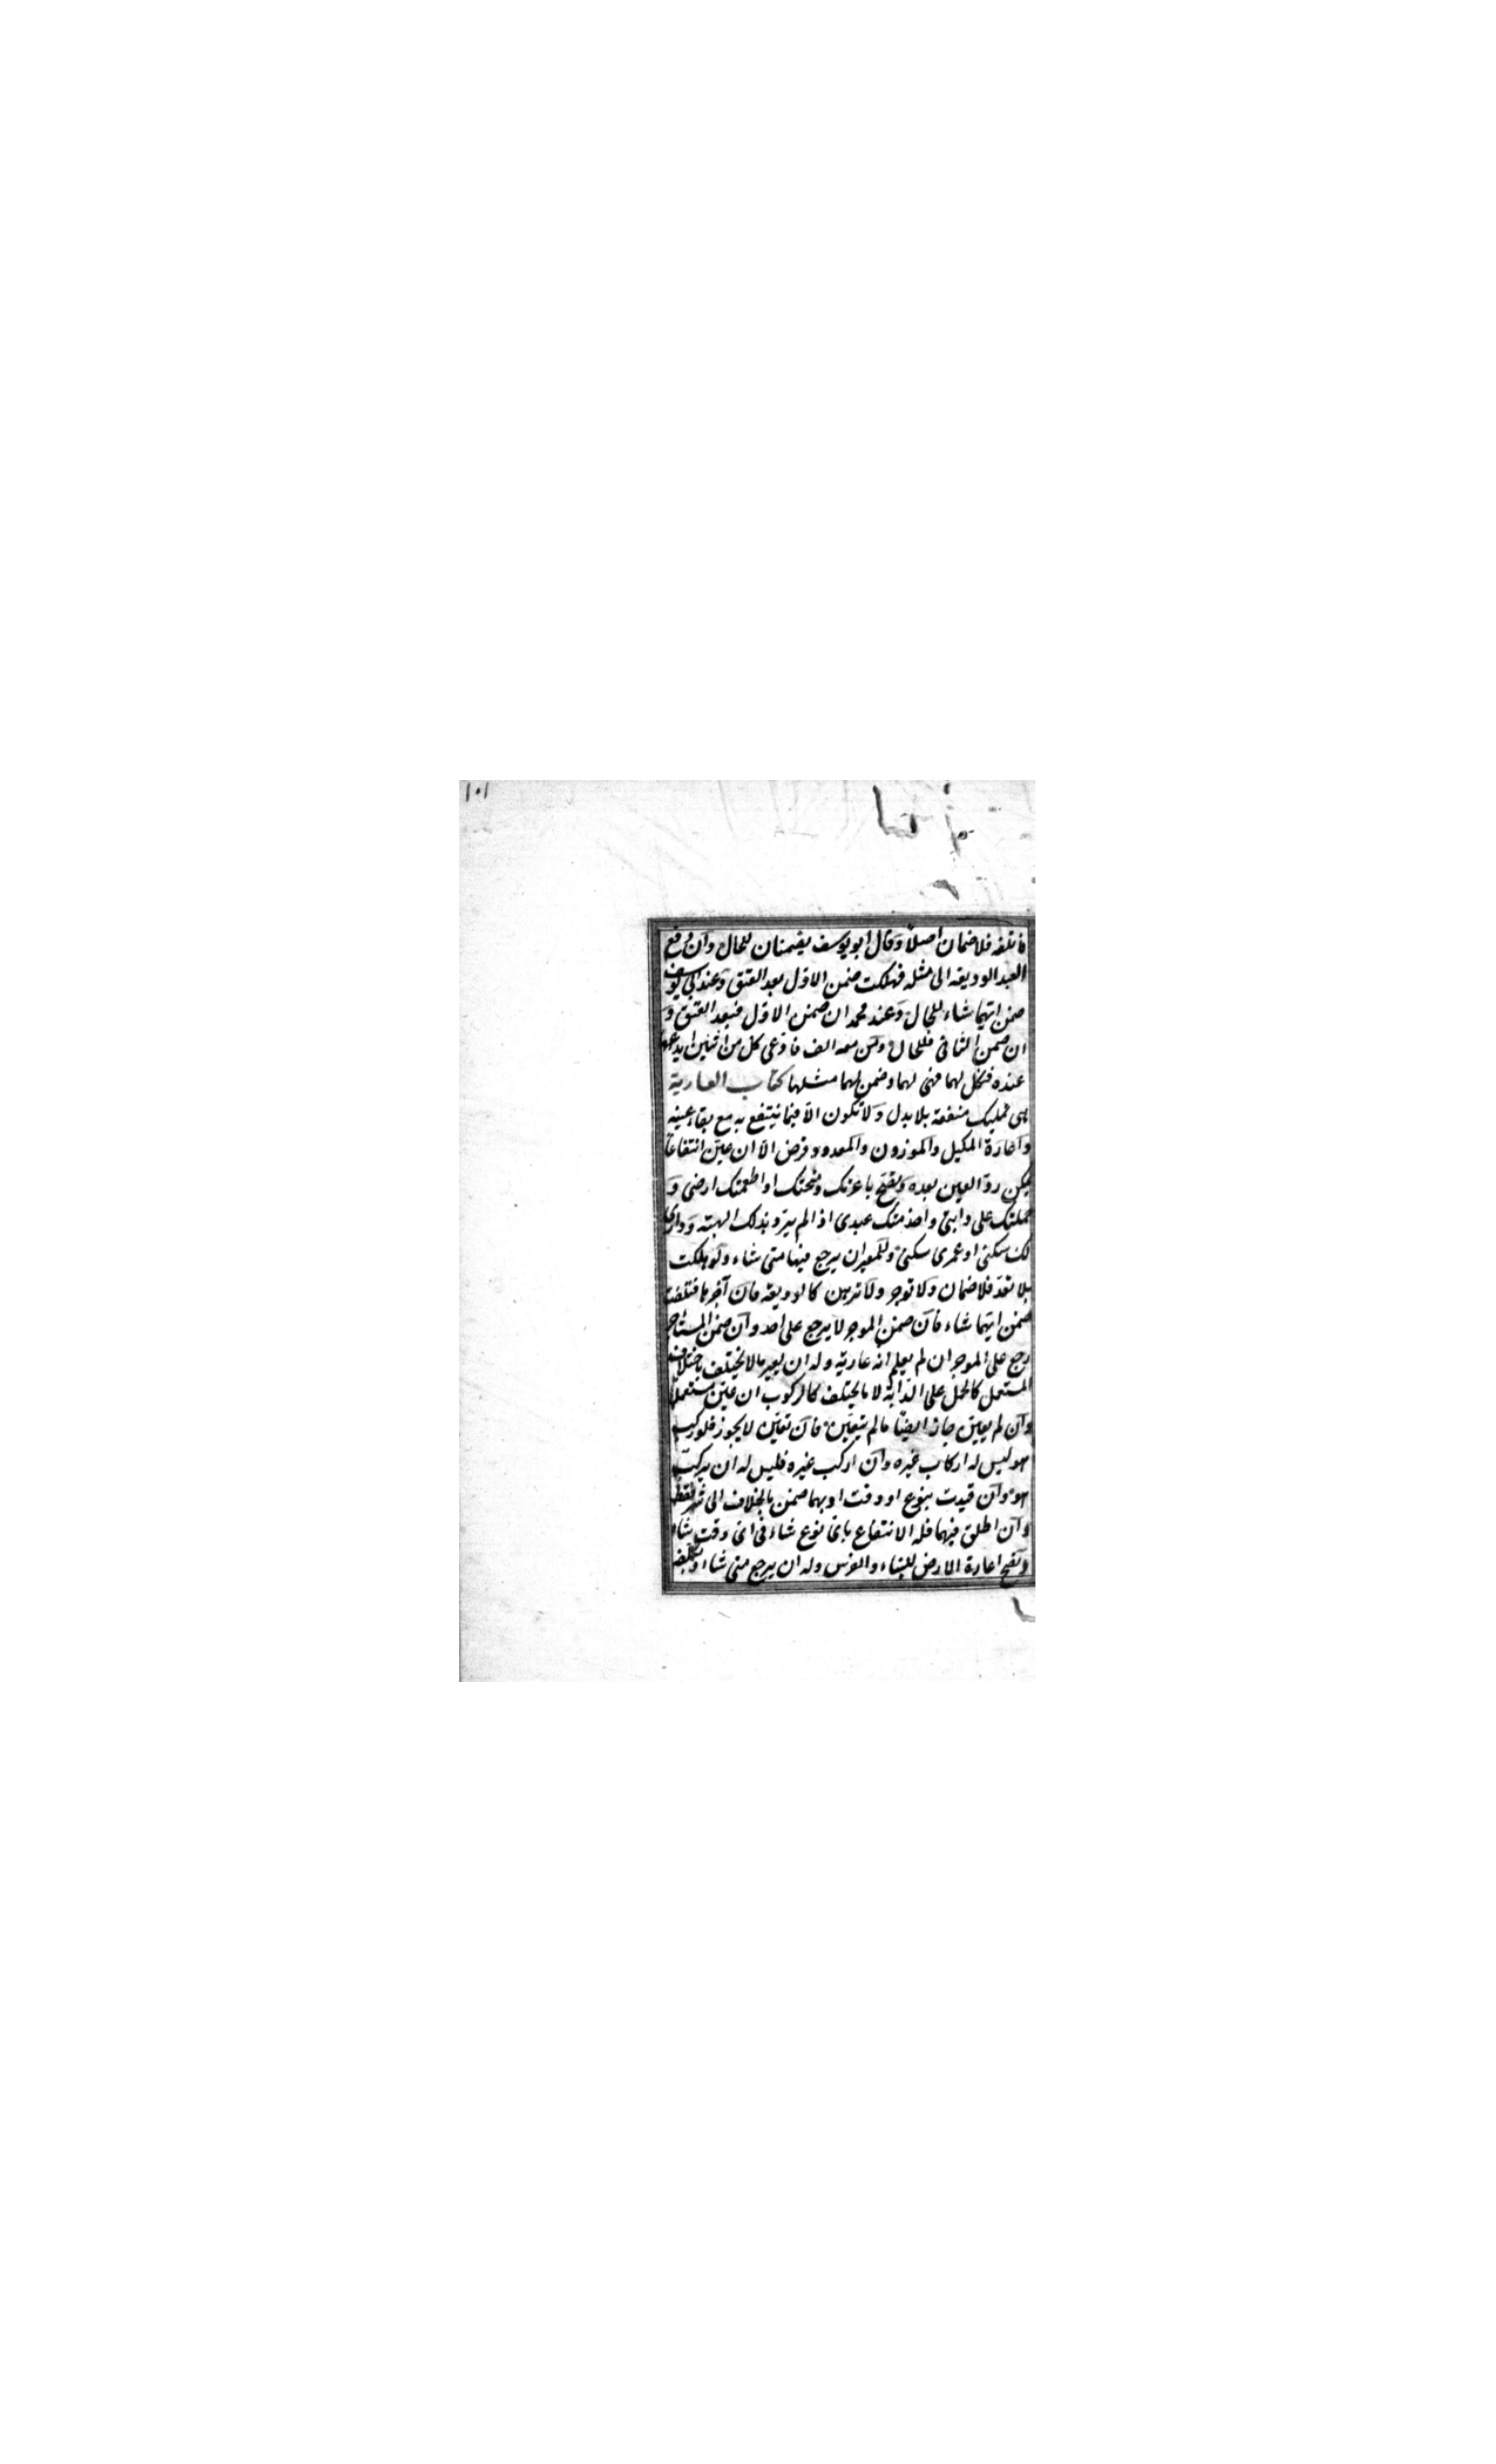 ١٠١
فأتلفه فلا ضمان اصلا وقال ابو يوسف يضمنان للحال وان دفع
العبد الوديعة الى مثله فهلكت ضمن الاول بعد العتق وعند ابى يوسف
ضمن ايهما شاء للحال وعند محمد ان ضمن الاول فبعد العتق و
ان ضمن الثانى فللحال ومن معه الف فادعى كل من اثنين ايداعها
عنده فنكل لهما فهى لهما وضمن لهما مثلها كتاب العارية
هى تمليك منفعة بلا بدل ولا تكون الا فيما ينتفع به مع بقاء عينه
واعارة المكيل والموزون والمعدود قرض الا ان عين انتفاعا
يمكن رد العين بعده وتصح باعرتك ومنحتك او اطعمتك ارضى و
حملتك على دابتى واخدمتك عبدى اذا لم يرد بذلك الهبة ودارى
لك سكنى او عمرى سكنى وللمعير ان يرجع فيها متى شاء ولو هلكت
بلا تعد فلا ضمان ولا توجر ولا ترهن كالوديعة فان آجرها فتلفت
ضمن ايهما شاء فان ضمن الموجر لا يرجع على احد وان ضمن المستأجر
رجع على الموجر ان لم يعلم انه عارية وله ان يعير ما لا يختلف باختلاف
المستعمل كالحمل على الدابة لا ما يختلف كالركوب ان عين مستعملا
وان لم يعين جاز ايضا ما لم يتعين فان تعين لا يجوز فلو ركب
هو ليس له اركاب غيره وان اركب غيره فليس له ان يركب
هو وان قيدت بنوع او وقت او بهما ضمن بالخلاف الى شر فقط
وان اطلق فيهما فله الانتفاع باى نوع شاء فى اى وقت شاء
وتصح اعارة الارض للبناء والغرس وله ان يرجع متى شاء ويكلفه